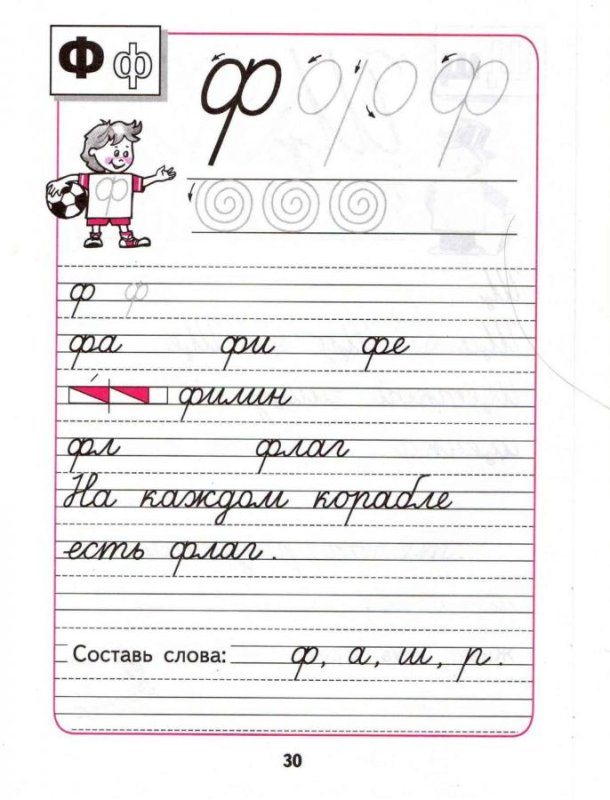 Ф ф
ф ф
ф ф
фа фи фе
филин
фл флаг
На каждом корабле
есть флаг.
Составь слова: ф, а, ш, р.
30